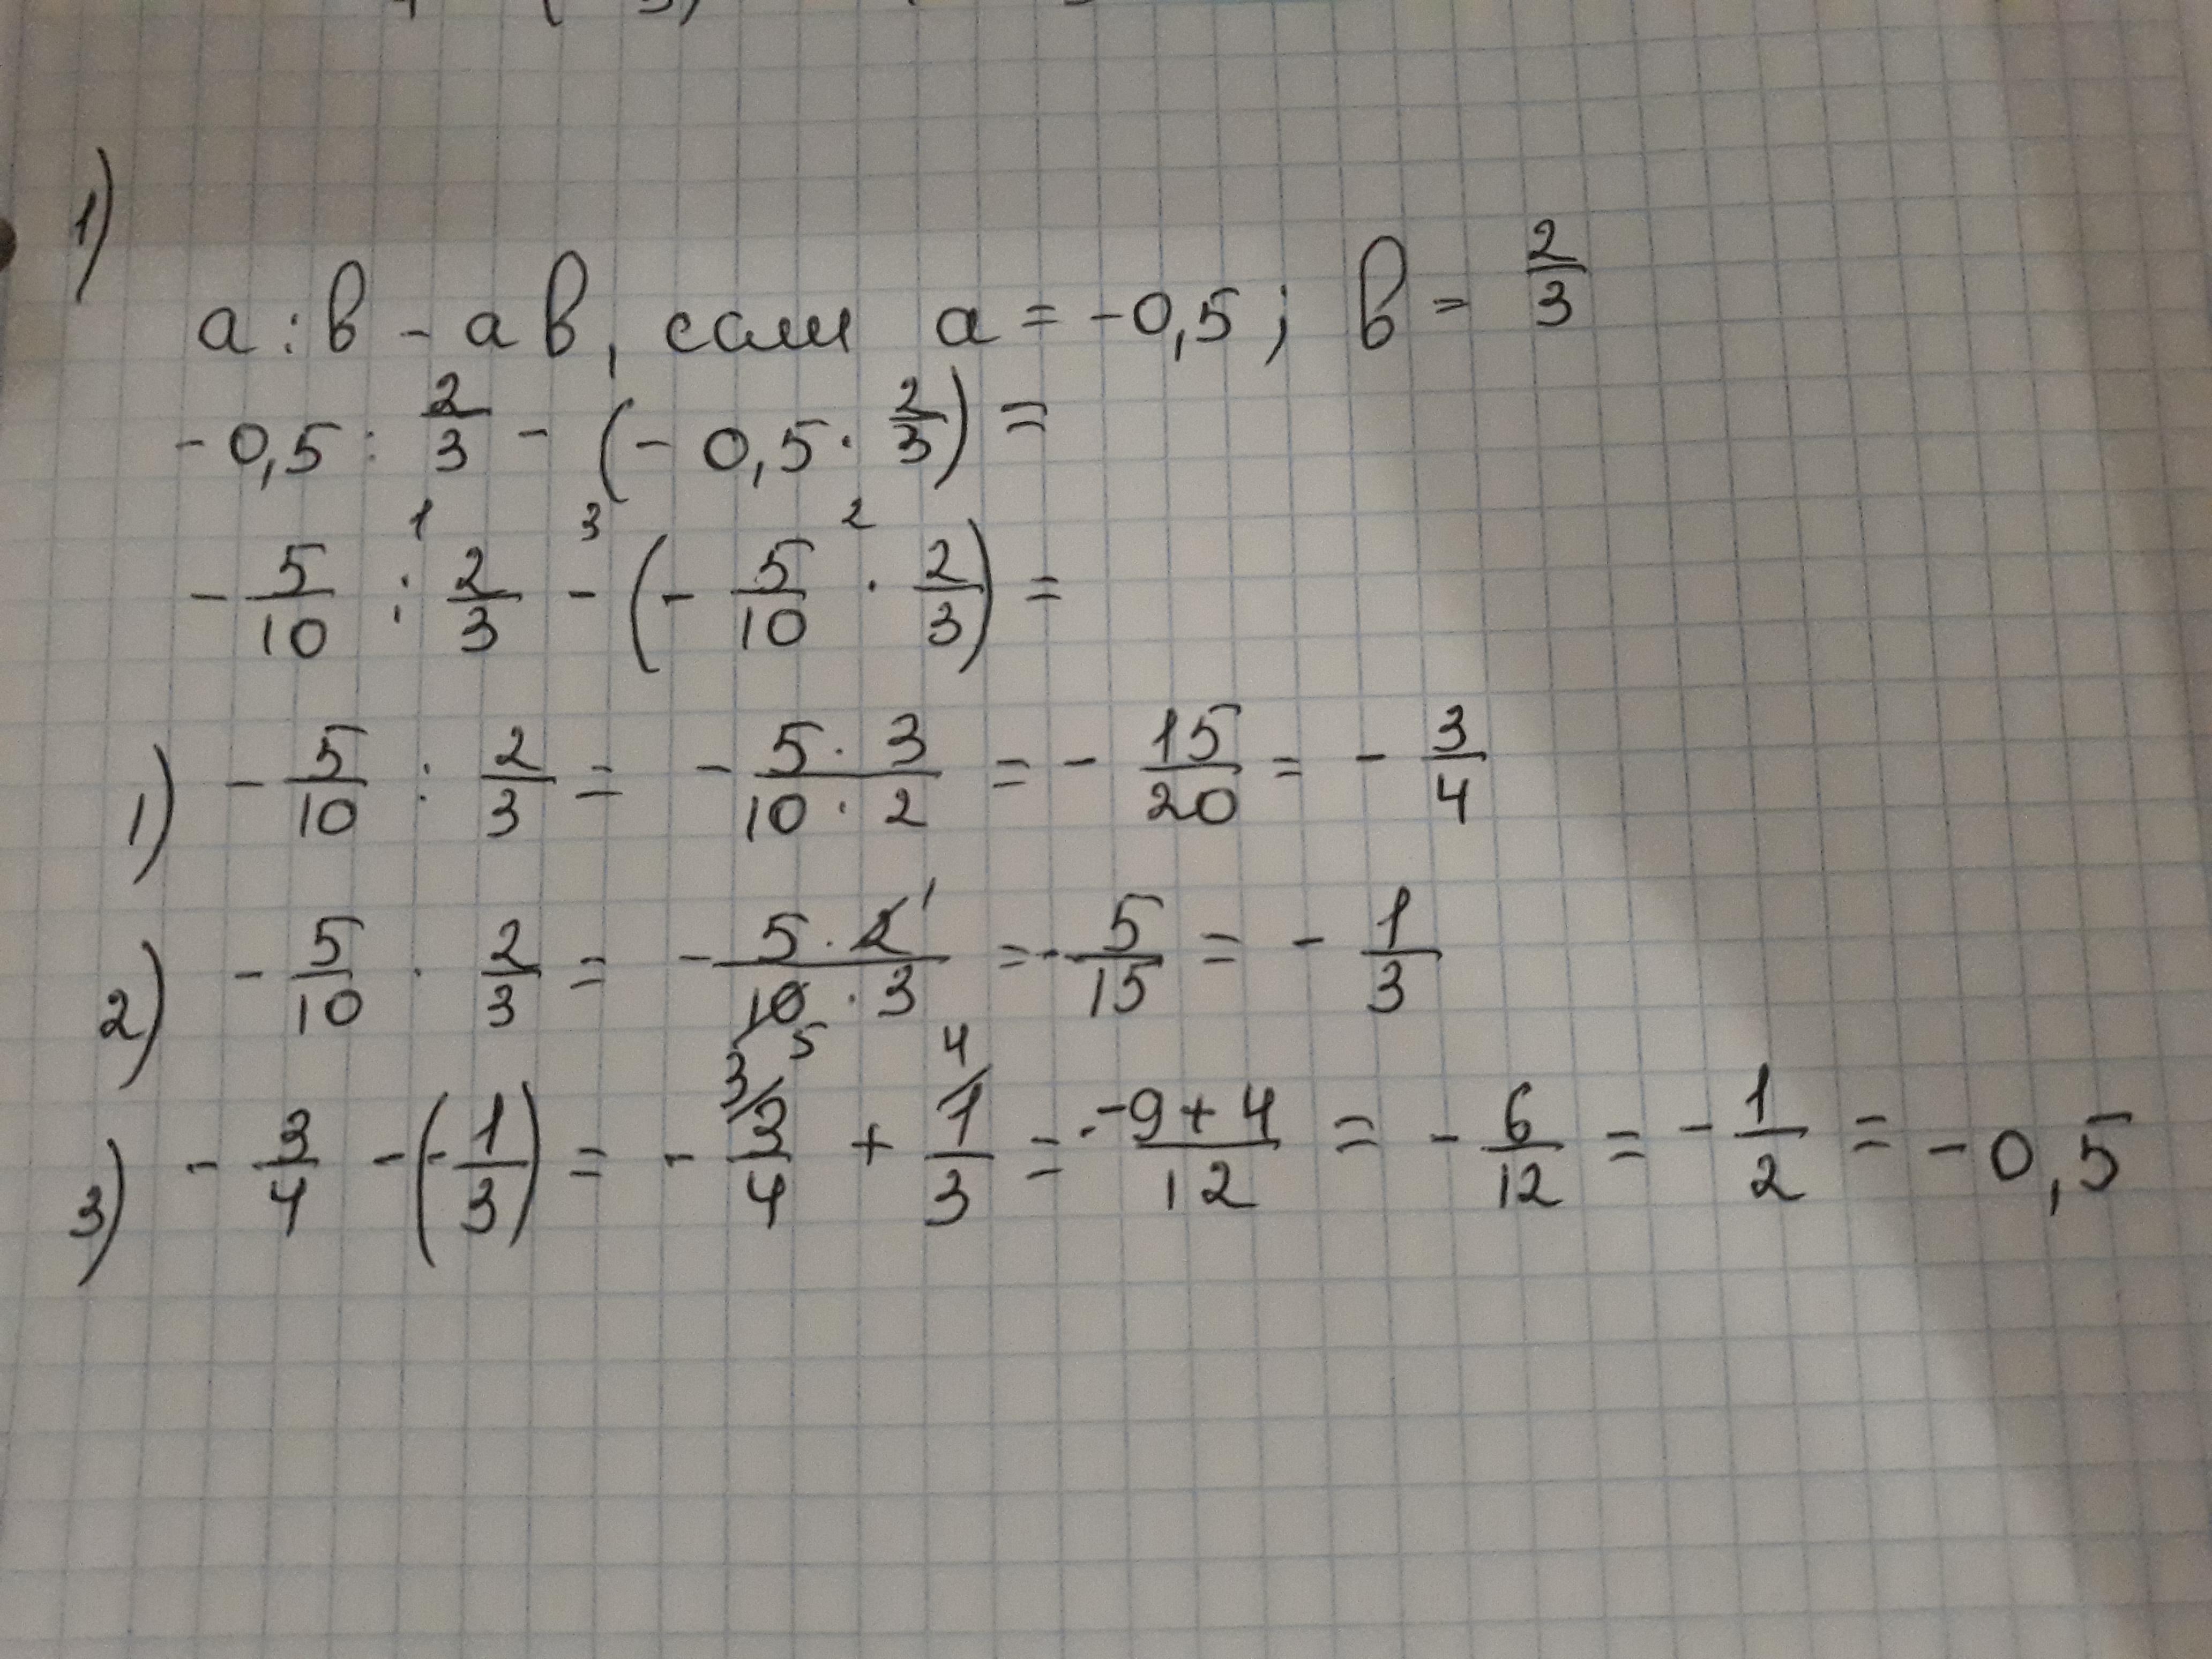 1)
a : b - ab, если a = -0,5; b = 2/3
-0,5 : 2/3 - (-0,5 · 2/3) =
1 3 2
-5/10 : 2/3 - (-5/10 · 2/3) =
1) -5/10 : 2/3 = -5·3/10·2 = -15/20 = -3/4
2) -5/10 · 2/3 = -5·2 1/10 5·3 = -5/15 = -1/3
3) -3/4 - (-1/3) = -3/4 3/ + 1/3 4/ = -9+4/12 = -6/12 = -1/2 = -0,5